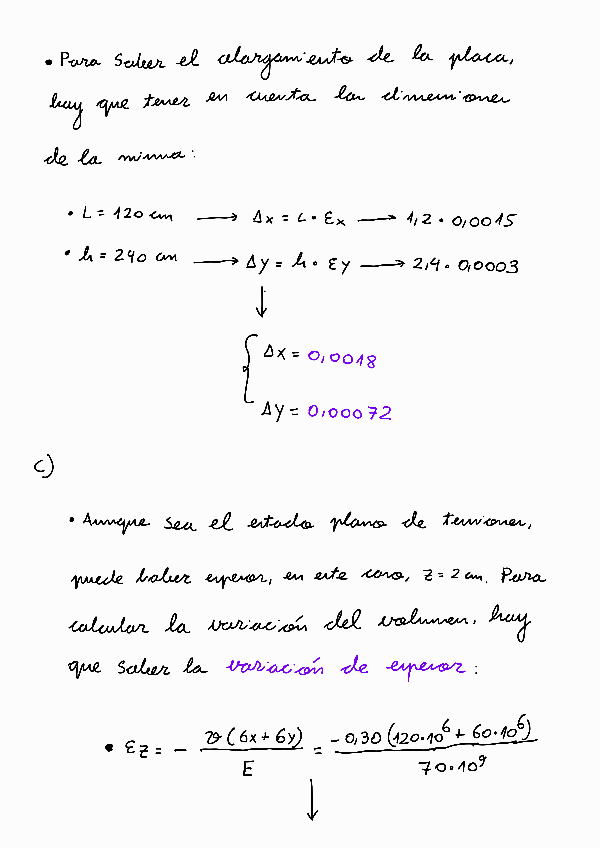 • Para saber el alargamiento de la placa,
hay que tener en cuenta las dimensiones
de la misma:
• L = 120 cm → Δx = L · εx → 1,2 · 0,0015
• h = 240 cm → Δy = h · εy → 2,4 · 0,0003
↓
{ Δx = 0,0018
Δy = 0,00072
c)
• Aunque sea el estado plano de tensiones,
puede haber espesor, en este caso, z = 2 cm. Para
calcular la variación del volumen, hay
que saber la variación de espesor:
• εz = - ν(6x + 6y) / E = -0,30 (120·10⁶ + 60·10⁶) / 70·10⁹
↓